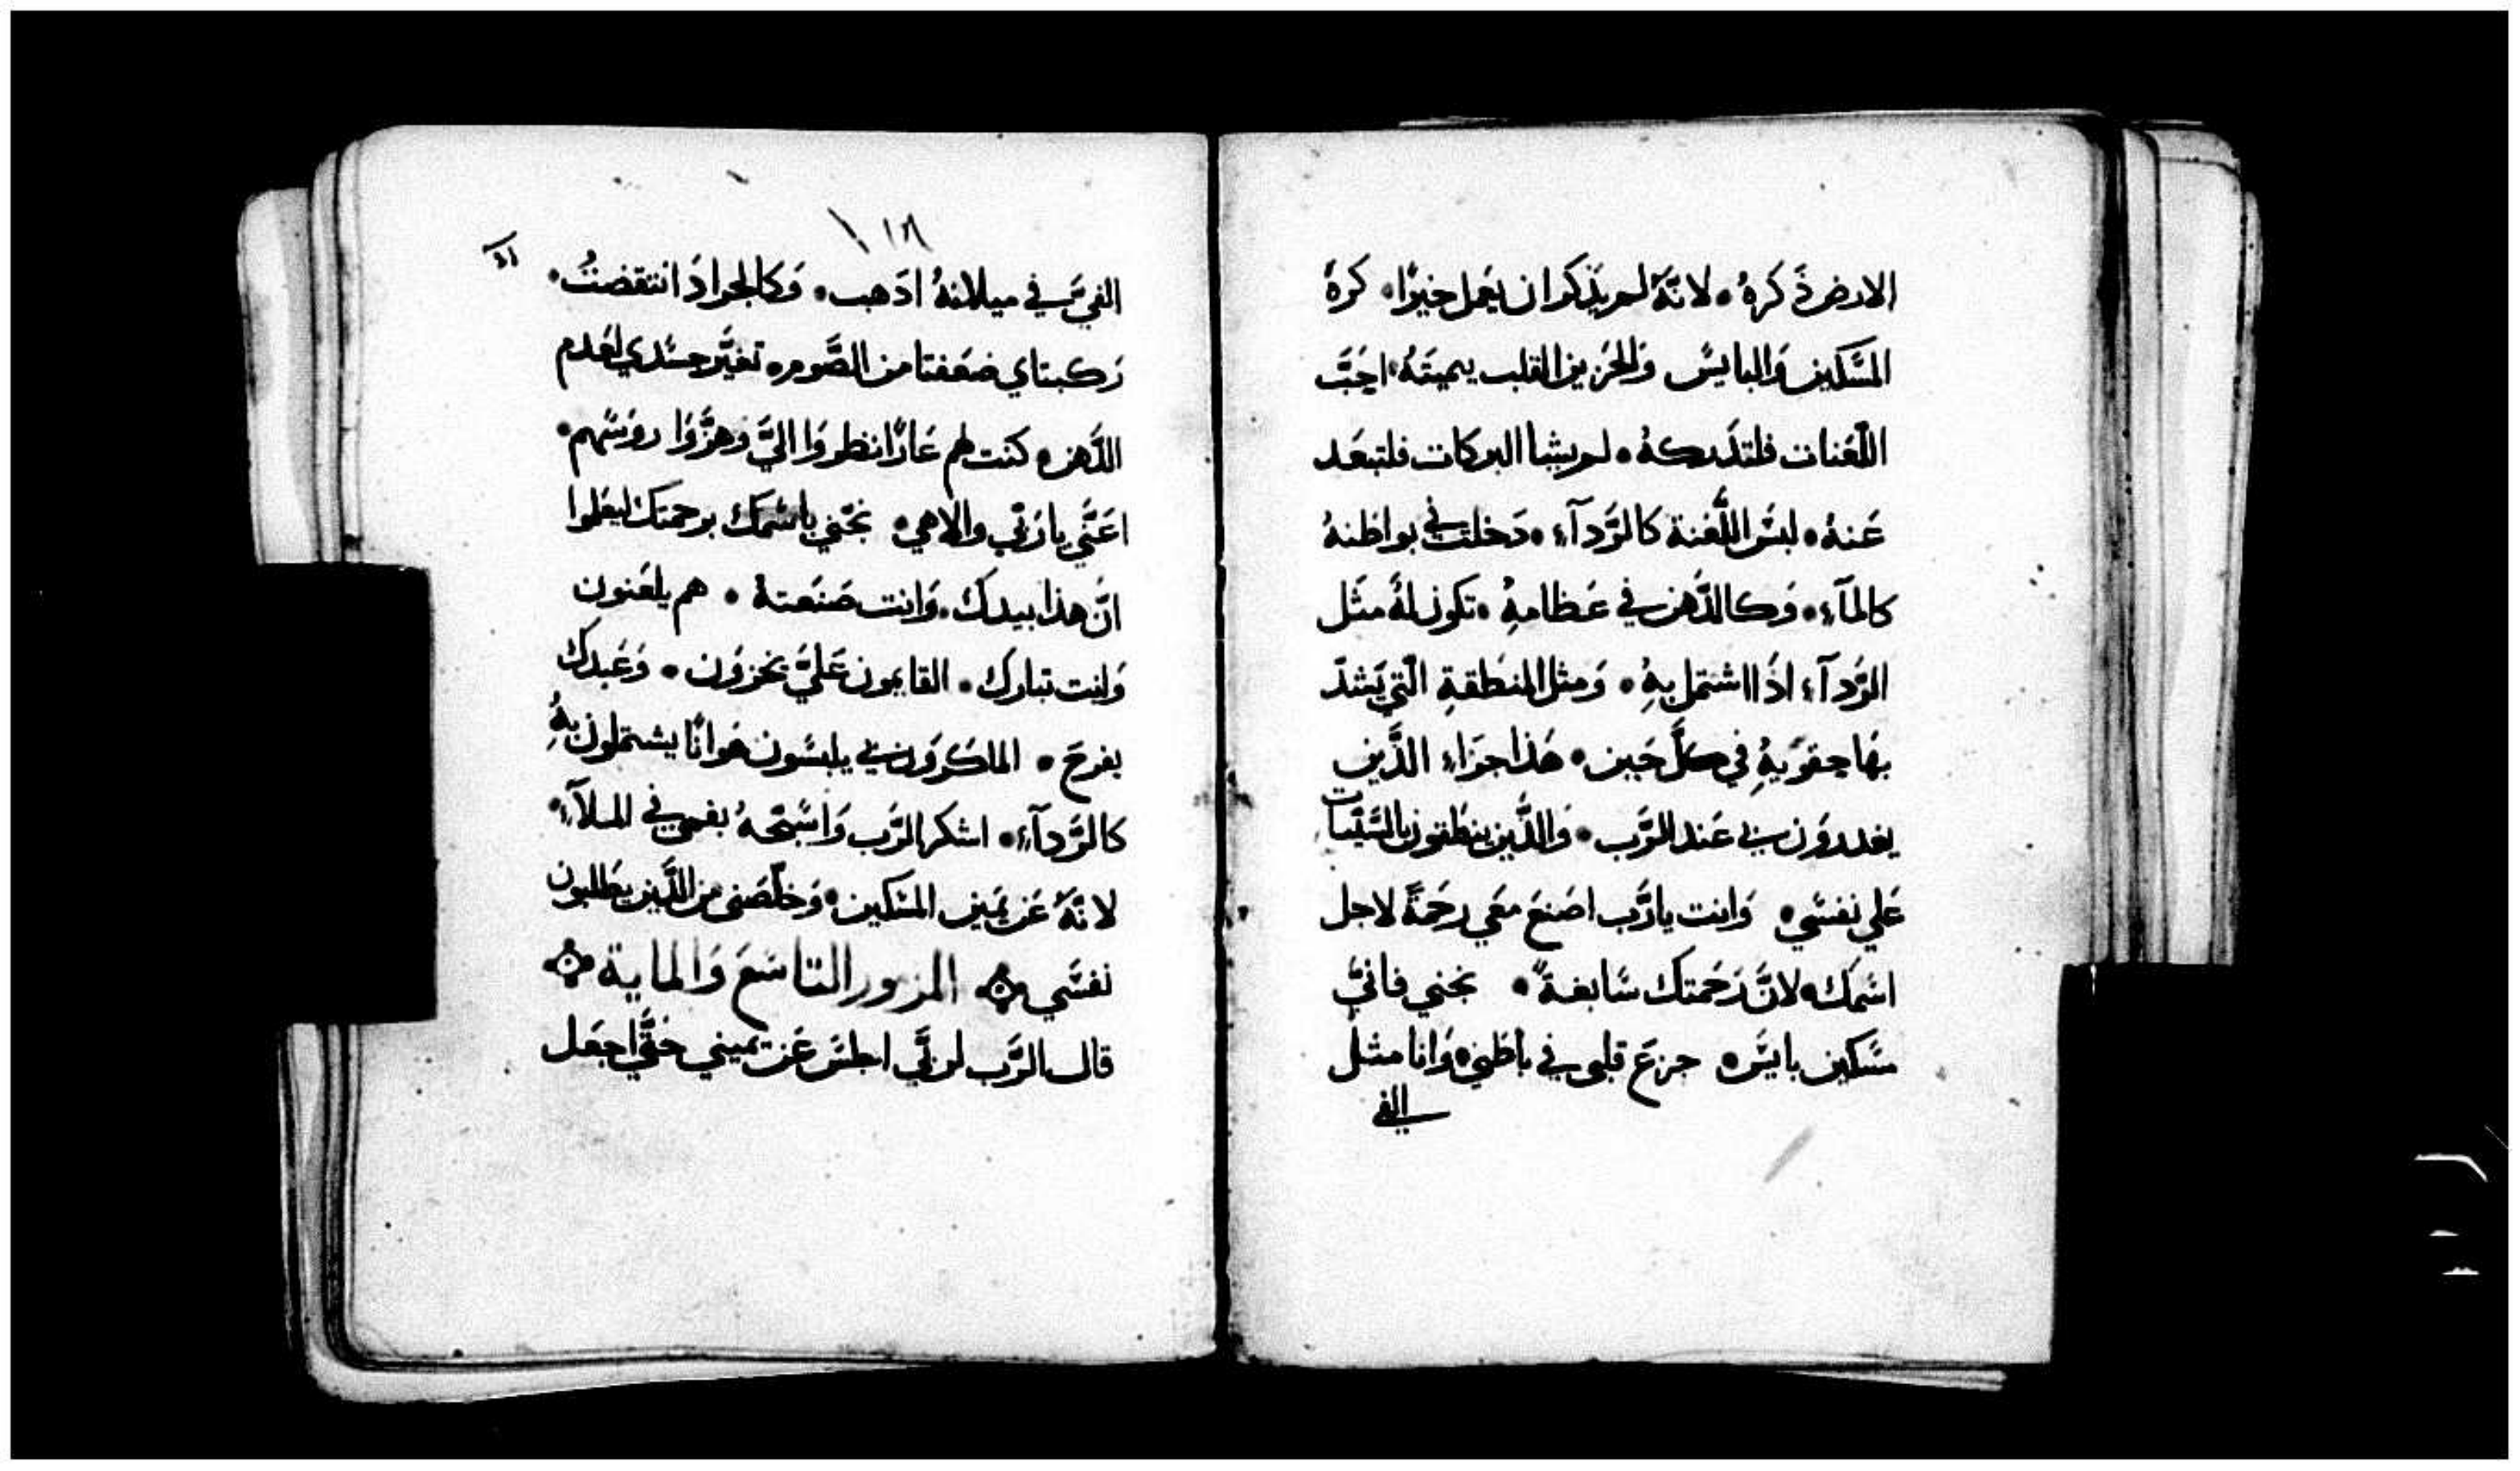 الارض ذَكرهُ • لانَّهُ لم يذكر ان يعمل خيرًا • كرهَ
المسَّكين وَالبايسَّ وَالحَزين القلب يميتَهُ • احَبَّ
اللّعَنات فلتدَركهُ • لم يشا البركات فلتبعَد
عَنهُ • لبسَّ اللَّعَنة كالرَّدآء • دَخلت في بواطنهُ
كالمآء • وَكالدَّهن في عَظامهِ • تكون لهُ مثَل
الرَّدآء اذَا اشتمل بهِ • وَمثل المنطقةِ الَّتي يَشدّ
بهَا حقوَيهِ في كلَّ حَين • هَذا جزَاء الذَّين
يغدروَن بي عَند الرَّب • وَالذَّين ينطَقون بالسَّيّات
عَلي نفسَّي • وَانت يارَّب اصَنعَ معَي رحَمةً لاجل
اسَّمك • لانَّ رَحَمتك سَّابغةً • نجني فانيَّ
مسَّكين بايسَّ • جزعَ قلبي في باطَني • وَانا مثل
الفي
١٢١
الفيَّ في ميلانهُ ادَهب • وَكالجرادَ انتقضتُ •
رَكبتاي ضعَفتا من الصَّوم • تغيَّر جسَّدي لعَدم
الدَّهن • كنت لهم عَارًا نظروَا اليَّ وَهزَّوَا روَسَّهم •
اعَنَّي يارَبّي والاهي • نجّني باسَّمك برحمتك ليعَلموا
انَّ هذا بيدك • وَانت صَنَعتهُ • هم يلعَنون
وَانت تبارك • القايمون عَليَّ يخزوَن • وَعَبدك
يفرحَ • الماكروَن بي يلبسَّون هَوانًا يشتملون بهِ
كالرَّدآء • اشكر الرَّب وَاسَّبّحهُ بفمي في الملآء •
لانَّهُ عَن يَمين المسَّكين • وَخلّصَني من الذَّين يطَلبون
نفسَّي • المزمور التاسَّعَ وَالماية •
قال الرَّب لرَبَّي اجلسَّ عَن يَميني حَتَّي اجعَل